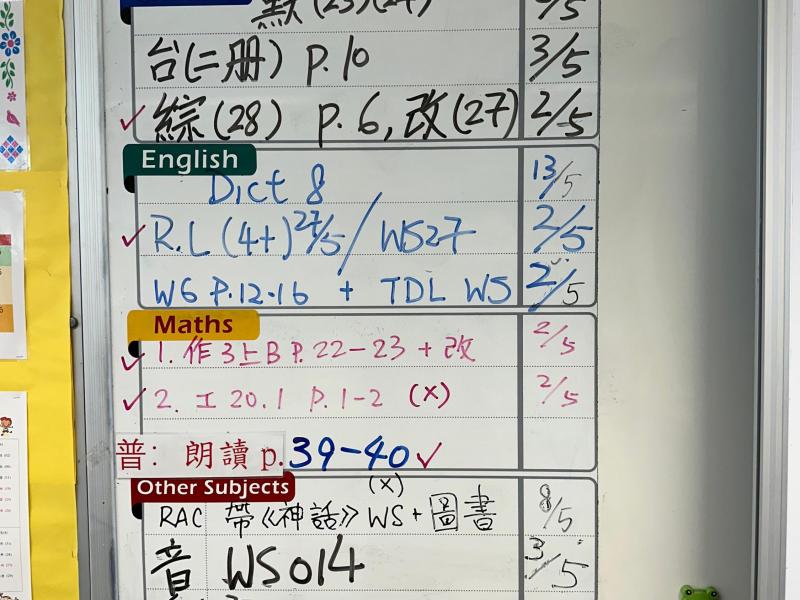 默(23)(24) /5
台(二册) p.10 3/5
✓ 綜(28) p.6,改(27) 2/5
English
Dict 8 13/5
✓ R.L (4+)27/5 / WS27 2/5
WG P.12-16 + TDL WS 2/5
Maths
✓ 1. 作3上B P.22-23 + 改 2/5
✓ 2. 工 20.1 P.1-2 (x) 2/5
普: 朗讀 p.39-40 ✓
Other Subjects (x)
RAC 帶《神話》WS + 圖書 8/5
音 WS014 3/5